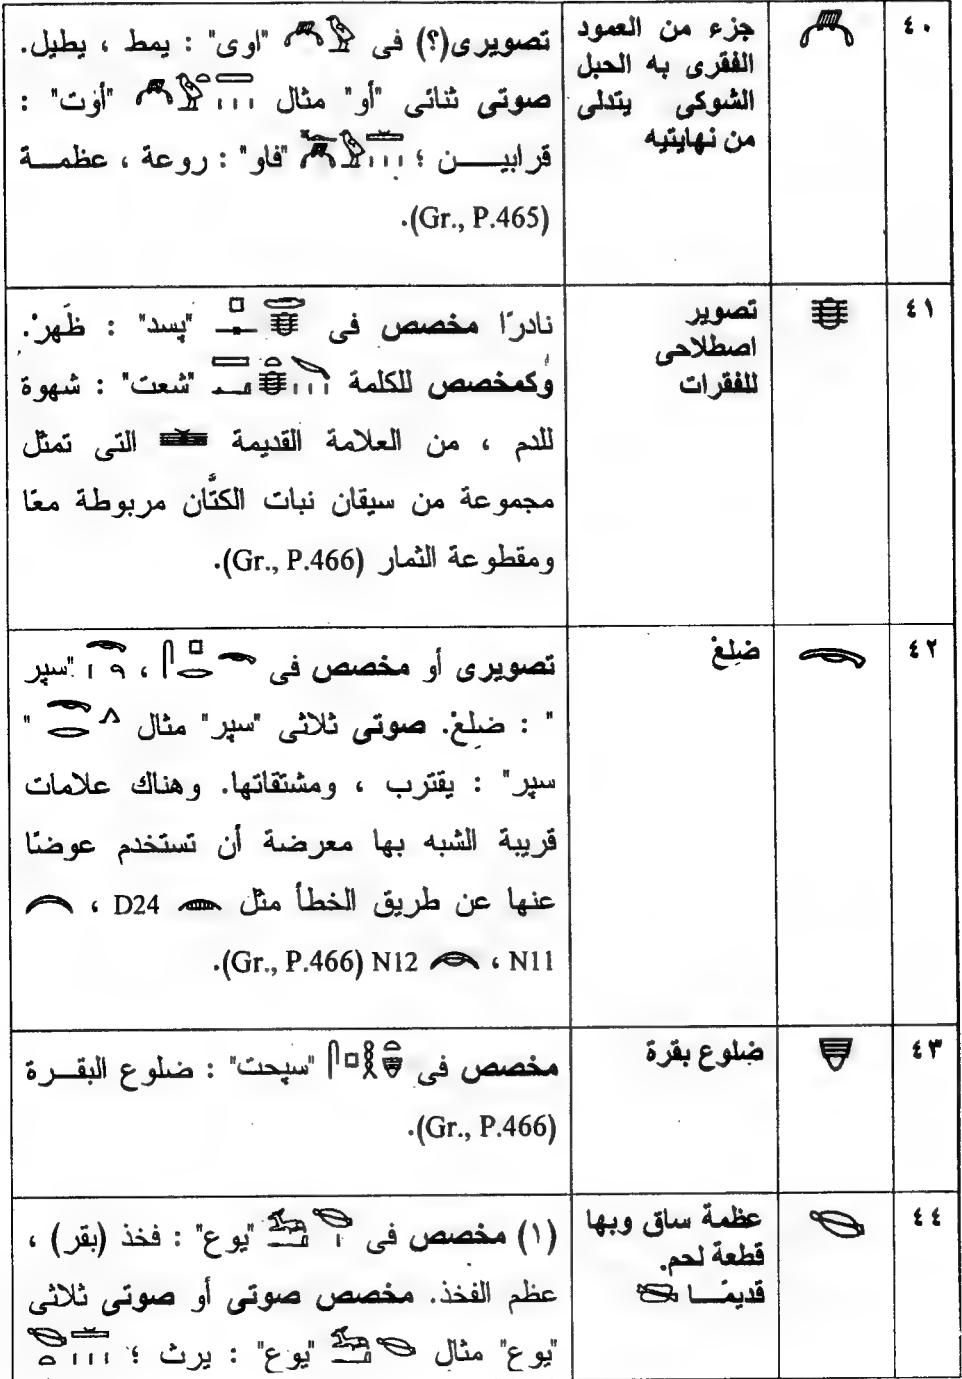 ٤٠
جزء من العمود
الفقرى به الحبل
الشوكى يتدلى
من نهايتيه
تصويرى(؟) فى "اوى" : يمط ، يطيل.
صوتى ثنائى "أو" مثال "أوت" :
قرابيـــن ؛ "فاو" : روعة ، عظمــة
(Gr., P.465).
٤١
تصوير
اصطلاحى
للفقرات
نادرًا مخصص فى "پسد" : ظَهرْ.
وكمخصص للكلمة "شعت" : شهوة
للدم ، من العلامة القديمة التى تمثل
مجموعة من سيقان نبات الكتَّان مربوطة معًا
ومقطوعة الثمار (Gr., P.466).
٤٢
ضلِعْ
تصويرى أو مخصص فى ، "سپر
" : ضلِعْ. صوتى ثلاثى "سپر" مثال "
سپر" : يقترب ، ومشتقاتها. وهناك علامات
قريبة الشبه بها معرضة أن تستخدم عوضًا
عنها عن طريق الخطأ مثل D24 ،
N11 ، N12 (Gr., P.466).
٤٣
ضلوع بقرة
مخصص فى "سپحت" : ضلوع البقــرة
(Gr., P.466).
٤٤
عظمة ساق وبها
قطعة لحم.
قديمًــا
(١) مخصص فى "يوع" : فخذ (بقر) ،
عظم الفخذ. مخصص صوتى أو صوتى ثلاثى
"يوع" مثال "يوع" : يرث ؛